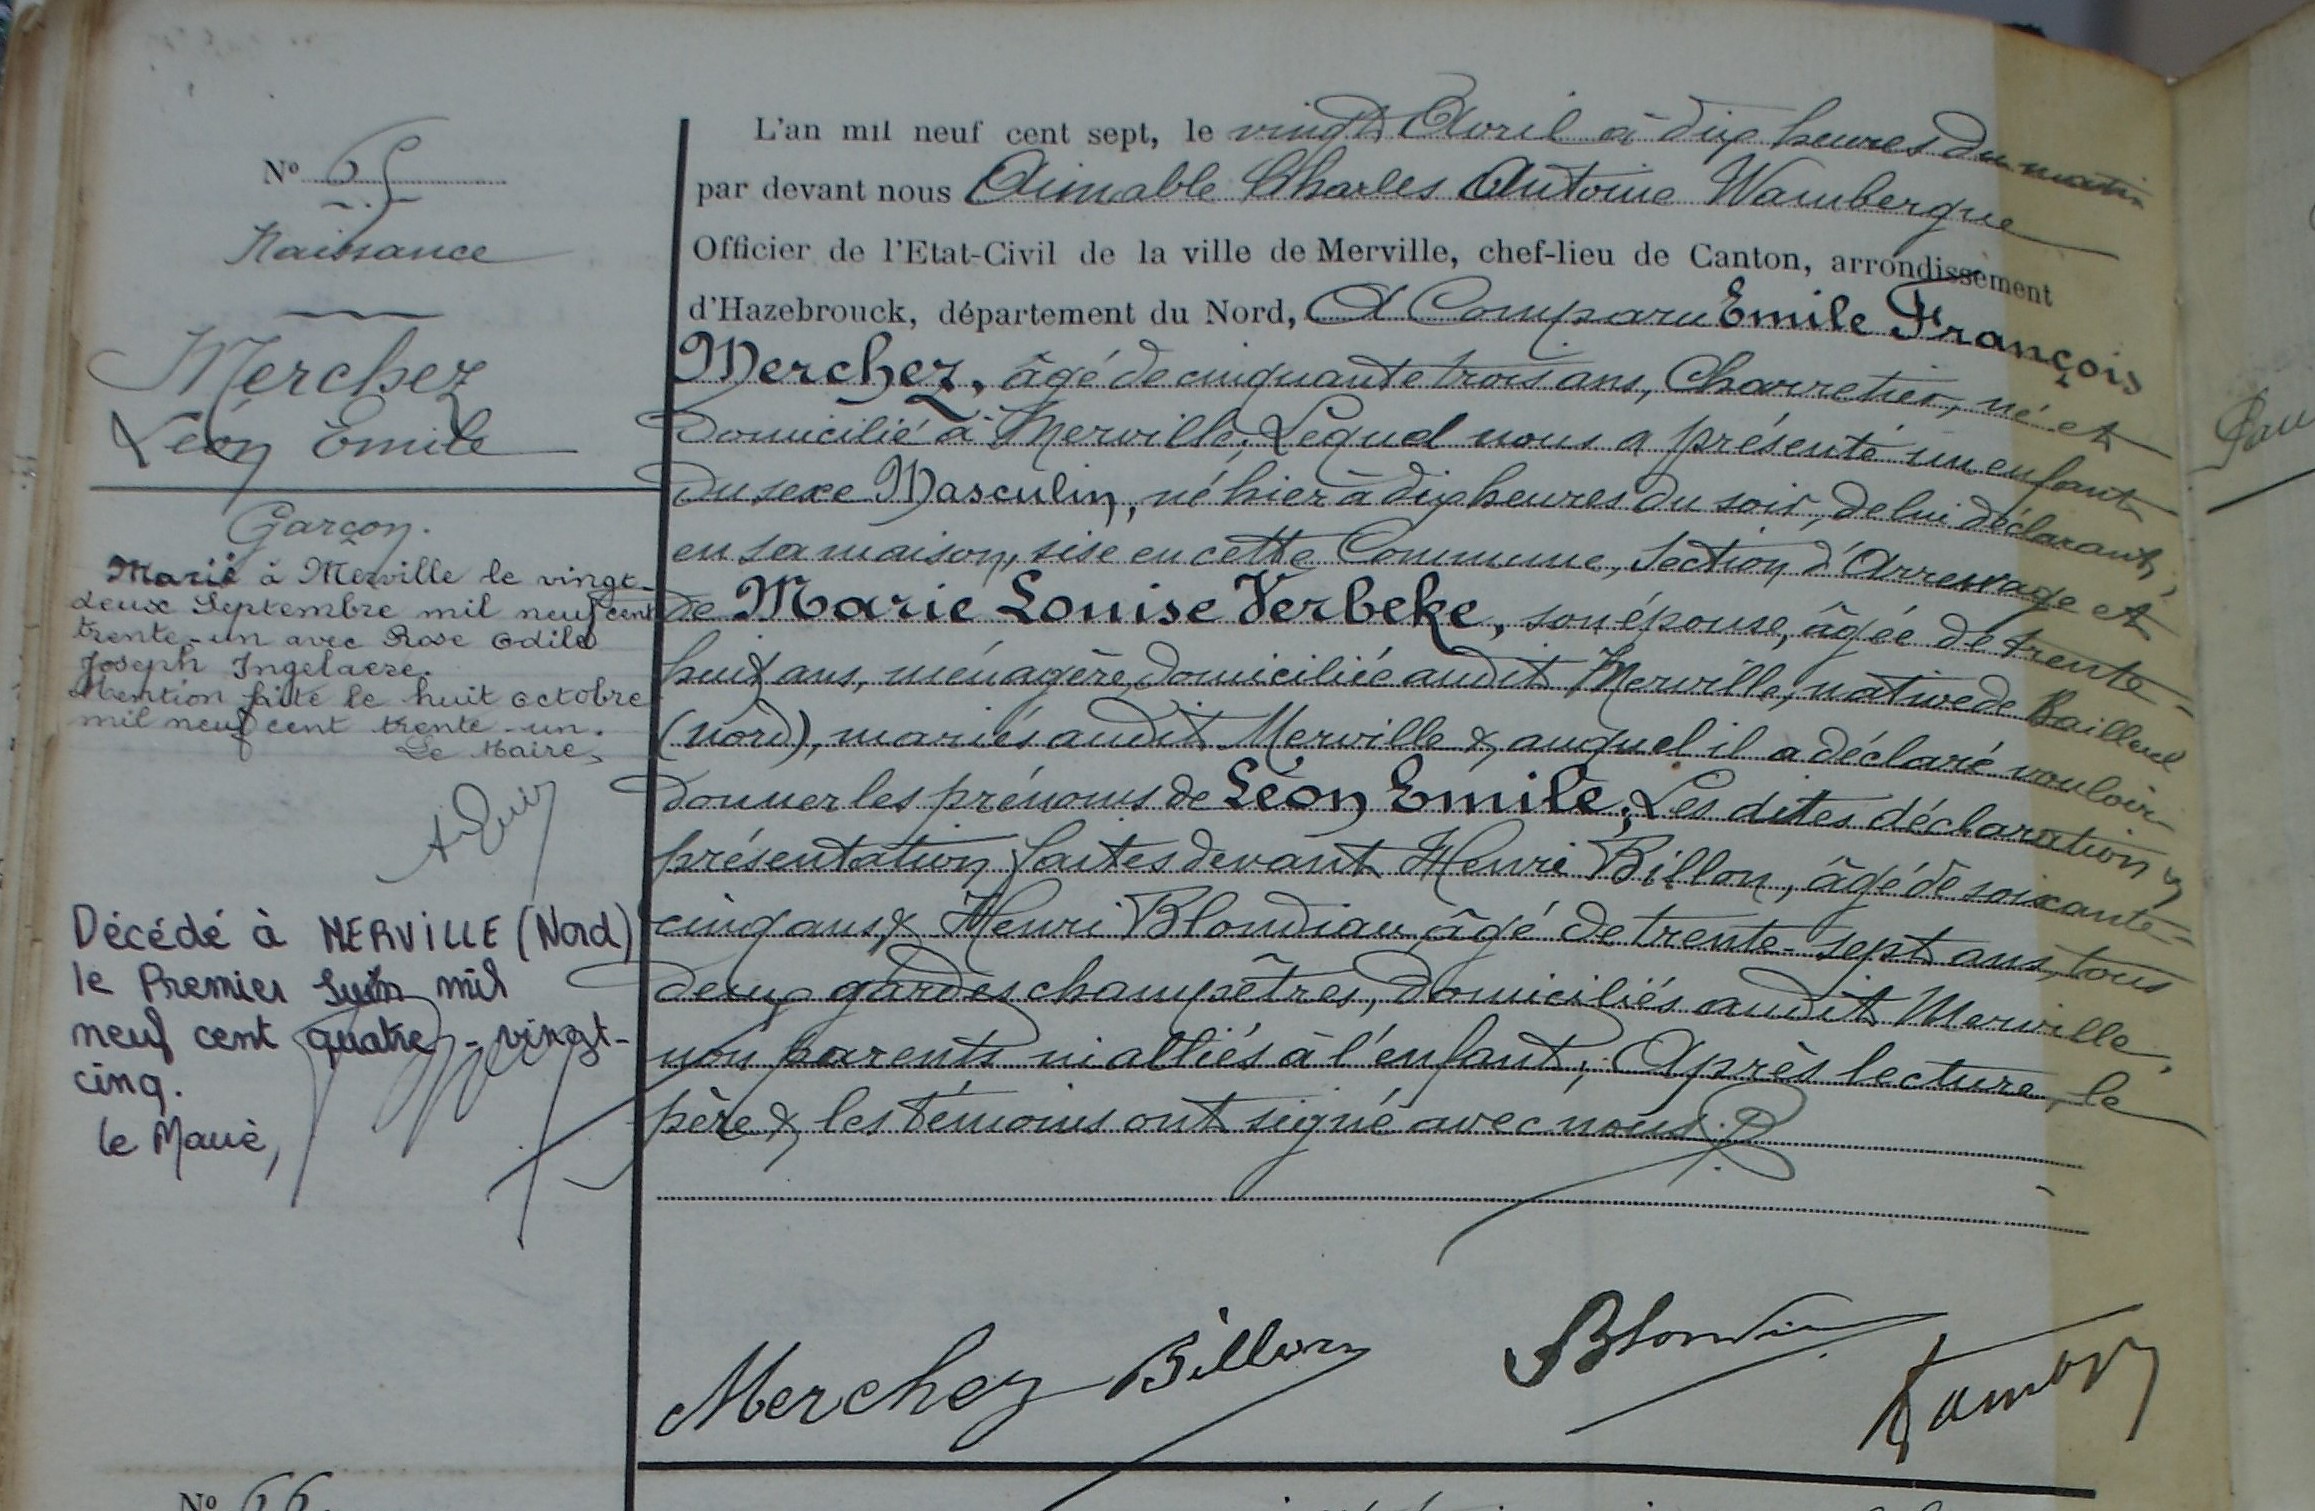 Nº 65
Naissance
Merchez
Léon Emile
Garçon.
Marié à Merville le vingt-
deux Septembre mil neuf cent
trente-un avec Rose Odile
Joseph Ingelaere.
Mention faite le huit octobre
mil neuf cent trente-un.
Le Maire,
Décédé à MERVILLE (Nord)
le Premier Juin mil
neuf cent quatre-vingt-
cinq.
le Maire,
L'an mil neuf cent sept, le vingt Avril à dix heures du matin
par devant nous Aimable Charles Antoine Wambergue
Officier de l'Etat-Civil de la ville de Merville, chef-lieu de Canton, arrondissement
d'Hazebrouck, département du Nord, A Comparu Emile François
Merchez, âgé de cinquante trois ans, Charretier, né et
Domicilié à Merville, Lequel nous a présenté un enfant
Du sexe Masculin, né hier à dix heures du soir, de lui déclarant,
en sa maison, sise en cette Commune, Section d'Arrewage et
de Marie Louise Verbeke, son épouse, âgée de trente-
huit ans, ménagère, domiciliée audit Merville, native de Bailleul
(Nord), mariés audit Merville & auquel il a déclaré vouloir
donner les prénoms de Léon Emile; Les dites déclaration &
présentation faites devant Henri Billon, âgé de soixante-
cinq ans, & Henri Blondiau âgé de trente-sept ans, tous
deux gardes champêtres, domiciliés audit Merville,
non parents ni alliés à l'enfant; Après lecture, le
père & les témoins ont signé avec nous.
Merchez Billon
Nº 66